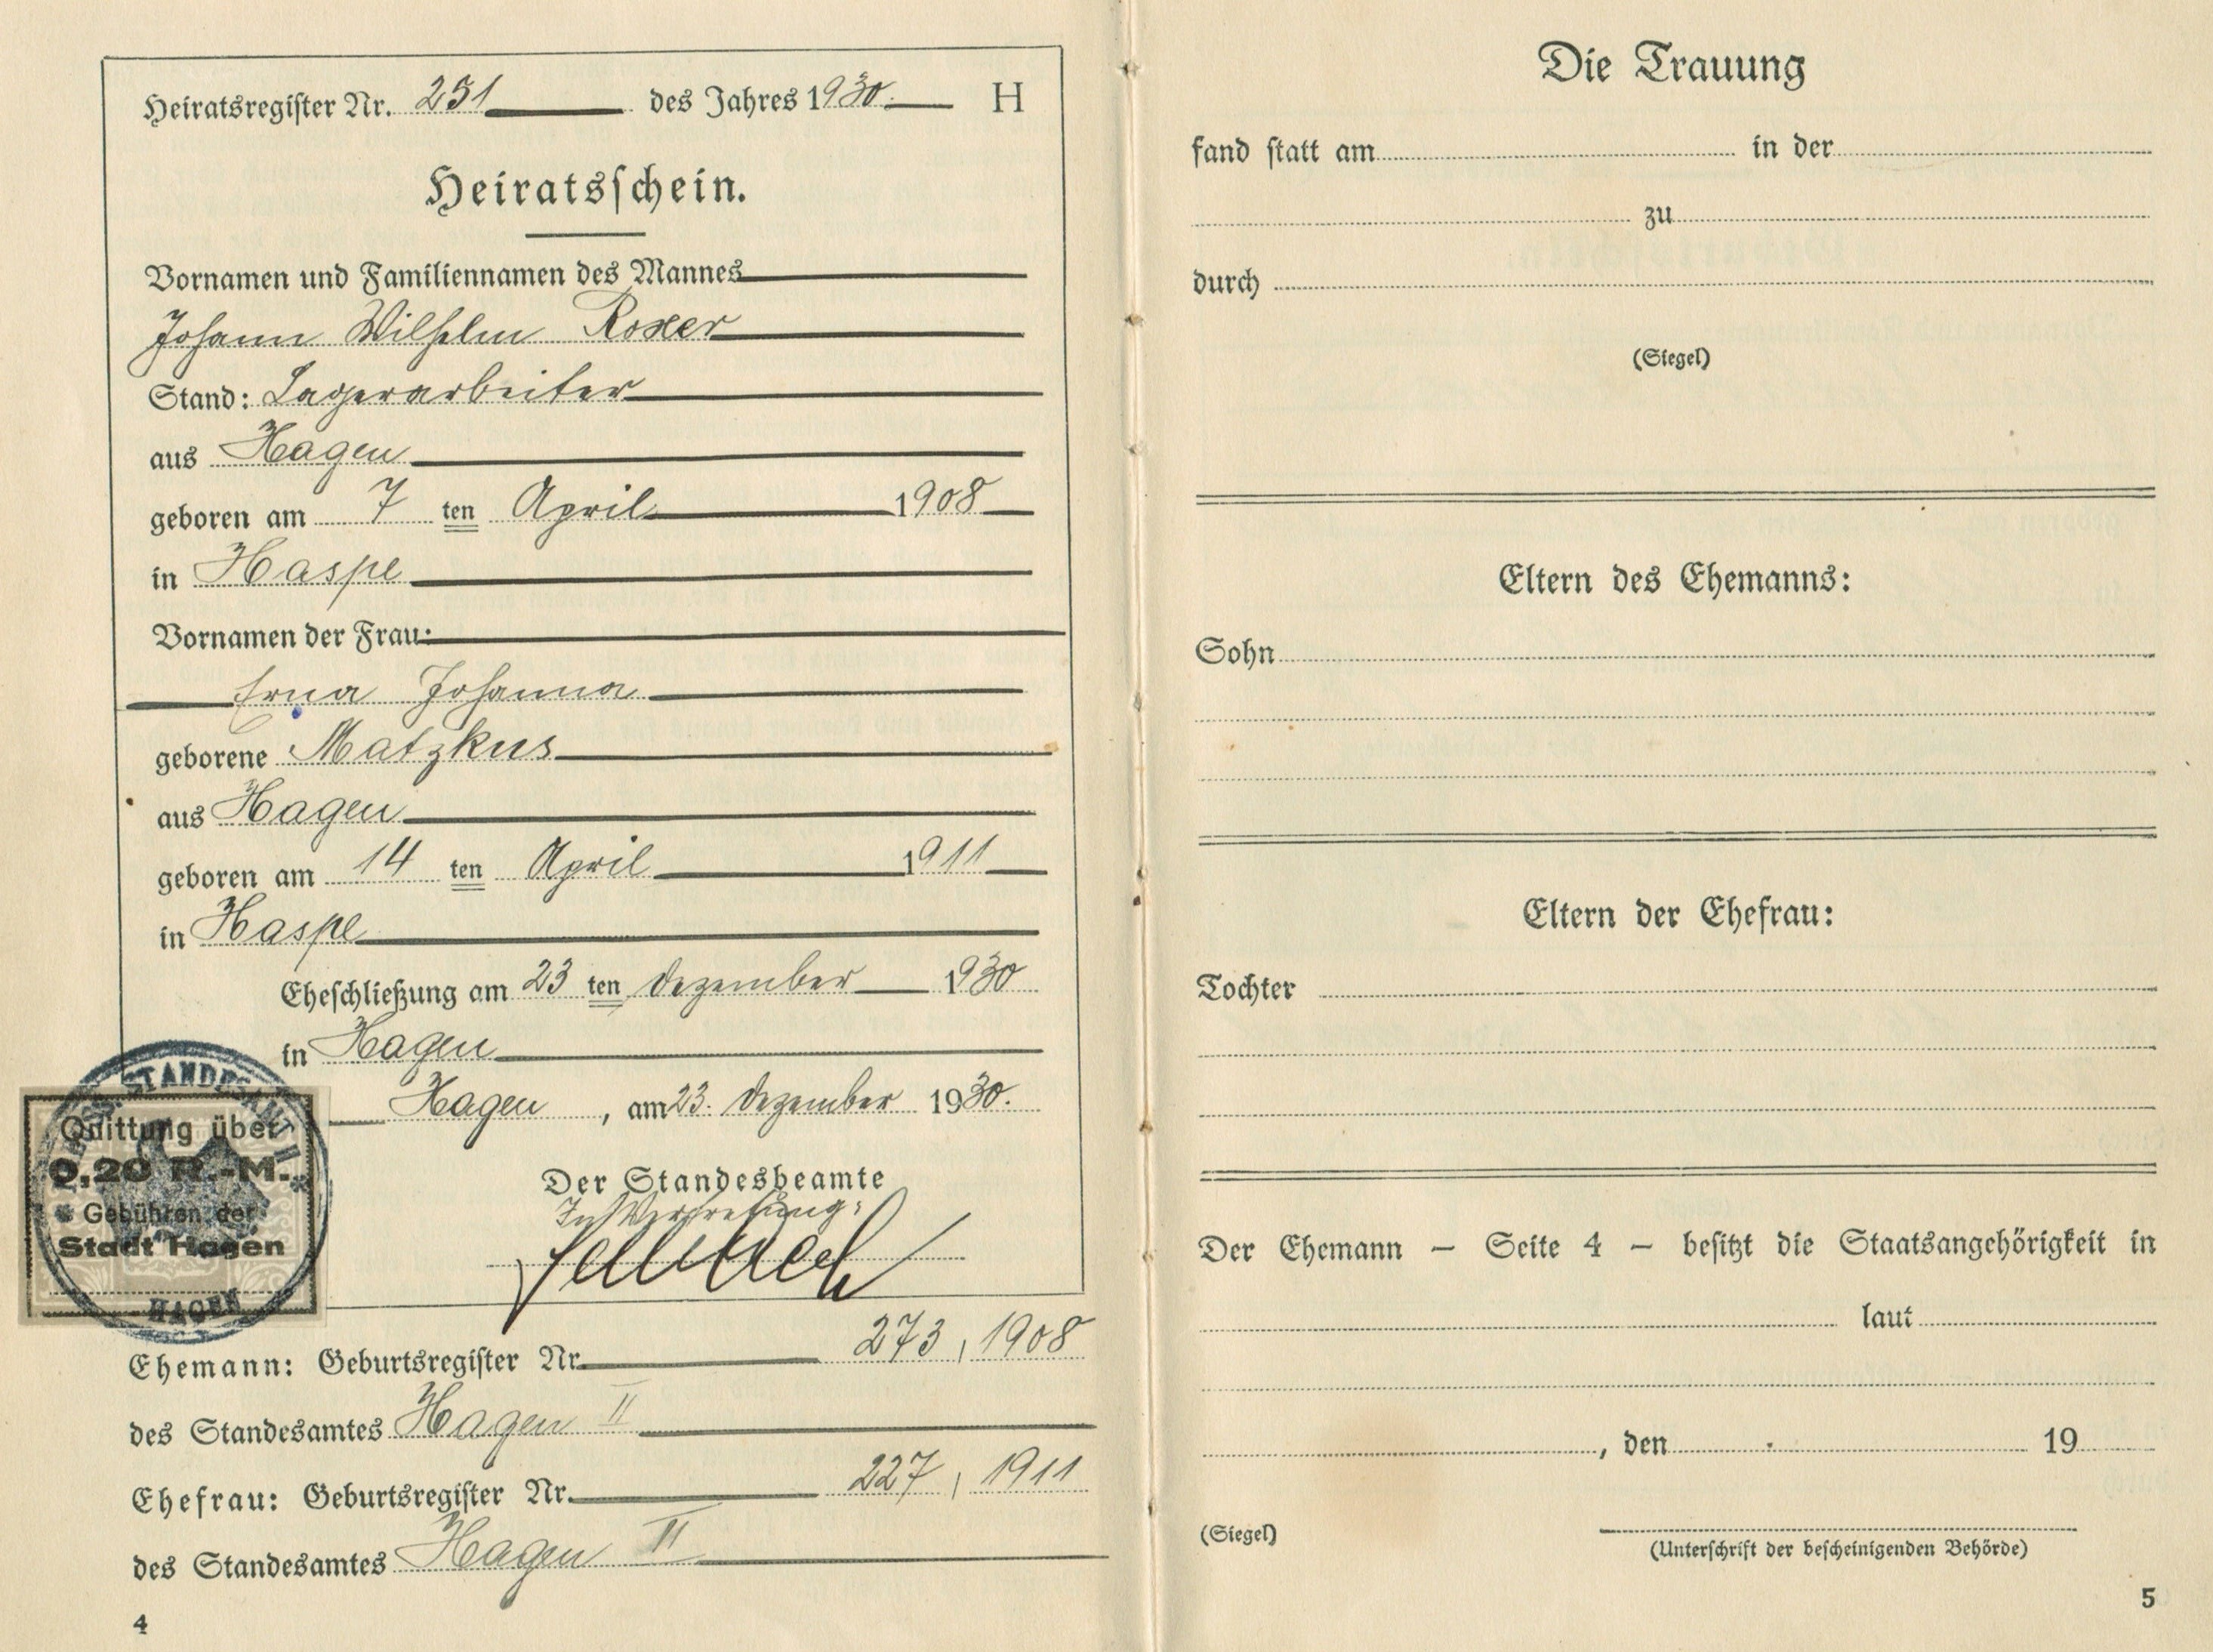 Heiratsregister Nr. 251 des Jahres 1930. H
Heiratsschein.
Vornamen und Familiennamen des Mannes
Johann Wilhelm Roxer
Stand: Lagerarbeiter
aus Hagen
geboren am 7 ten April 1908
in Haspe
Vornamen der Frau:
Erna Johanna
geborene Matzkus
aus Hagen
geboren am 14 ten April 1911
in Haspe
Eheschließung am 23 ten Dezember 1930
in Hagen
Hagen, am 23. Dezember 1930.
Der Standesbeamte
In Vertretung:
STANDESAMT II
Quittung über
0,20 R.-M.
Gebühren der
Stadt Hagen
HAGEN
Ehemann: Geburtsregister Nr. 273, 1908
des Standesamtes Hagen II
Ehefrau: Geburtsregister Nr. 227, 1911
des Standesamtes Hagen II
4
Die Trauung
fand statt am in der
zu
durch
(Siegel)
Eltern des Ehemanns:
Sohn
Eltern der Ehefrau:
Tochter
Der Ehemann – Seite 4 – besitzt die Staatsangehörigkeit in
laut
, den 19
(Siegel)
(Unterschrift der bescheinigenden Behörde)
5